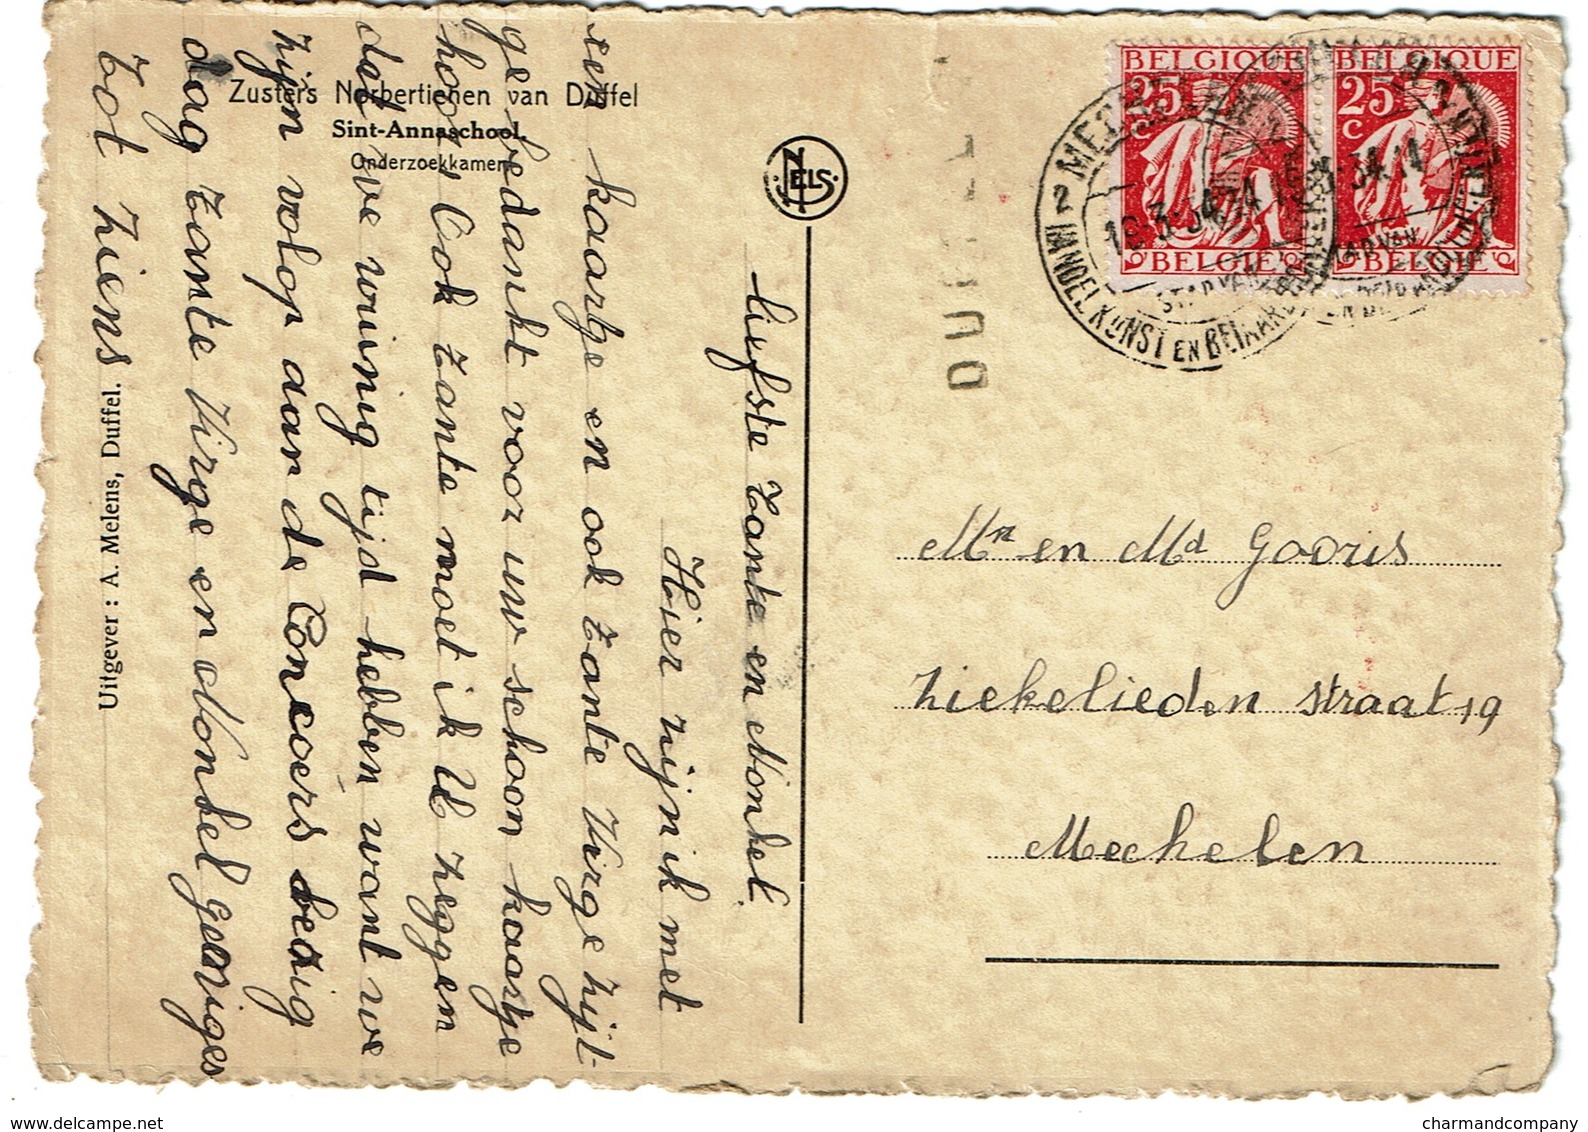 Zusters Norbertienen van Duffel
Sint-Annaschool.
Onderzoekkamer.
NELS
Uitgever: A. Melens, Duffel.
BELGIQUE
25
C
BELGIE
BELGIQUE
25
C
BELGIE
18.3.34.14
STAD VAN
MEUBELKUNST EN BEIAARD
liefste Tante en Nonkel.
Hier zijn ik met
een kaartje en ook Tante Virge zijt
gebedankt voor uw schoon kaartje
hoor Ook Tante moet ik U zeggen
dat we weinig tijd hebben want we
zijn volop aan de Concoers bezig
dag Tante Virge en Nonkel
Tot ziens
Mr en Md Gooris
Ziekelieden straat 19
Mechelen
www.delcampe.net
charmandcompany